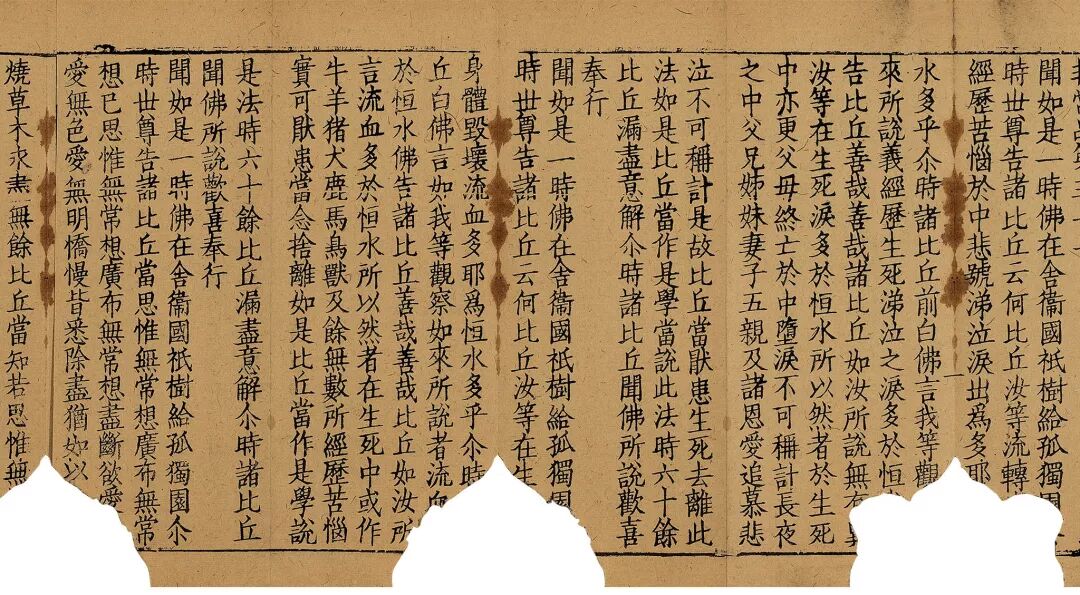 聞如是一時佛在舍衛國祇樹給孤獨園
時世尊告諸比丘云何比丘汝等流轉
經歷苦惱於中悲號涕泣淚出爲多耶
水多乎尒時諸比丘前白佛言我等觀
來所說義經歷生死涕泣之淚多於恒
告比丘善哉善哉諸比丘如汝所說無有
汝等在生死淚多於恒水所以然者於生死
中亦更父母終亡於中墮淚不可稱計長夜
之中父兄姊妹妻子五親及諸恩愛追慕悲
泣不可稱計是故比丘當猒患生死去離此
法如是比丘當作是學當說此法時六十餘
比丘漏盡意解尒時諸比丘聞佛所說歡喜
奉行
聞如是一時佛在舍衛國祇樹給孤獨園
時世尊告諸比丘云何比丘汝等在生
身體毀壞流血多耶爲恒水多乎尒時
丘白佛言如我等觀察如來所說者流血
於恒水佛告諸比丘善哉善哉比丘如汝所
言流血多於恒水所以然者在生死中或作
牛羊猪犬鹿馬鳥獸及餘無數所經歷苦惱
實可猒患當念捨離如是比丘當作是學說
是法時六十餘比丘漏盡意解尒時諸比丘
聞佛所說歡喜奉行
聞如是一時佛在舍衛國祇樹給孤獨園尒
時世尊告諸比丘當思惟無常想廣布無常
想已思惟無常想廣布無常想盡斷欲愛
愛無色愛無明憍慢皆悉除盡猶如以
燒草木永盡無餘比丘當知若思惟無